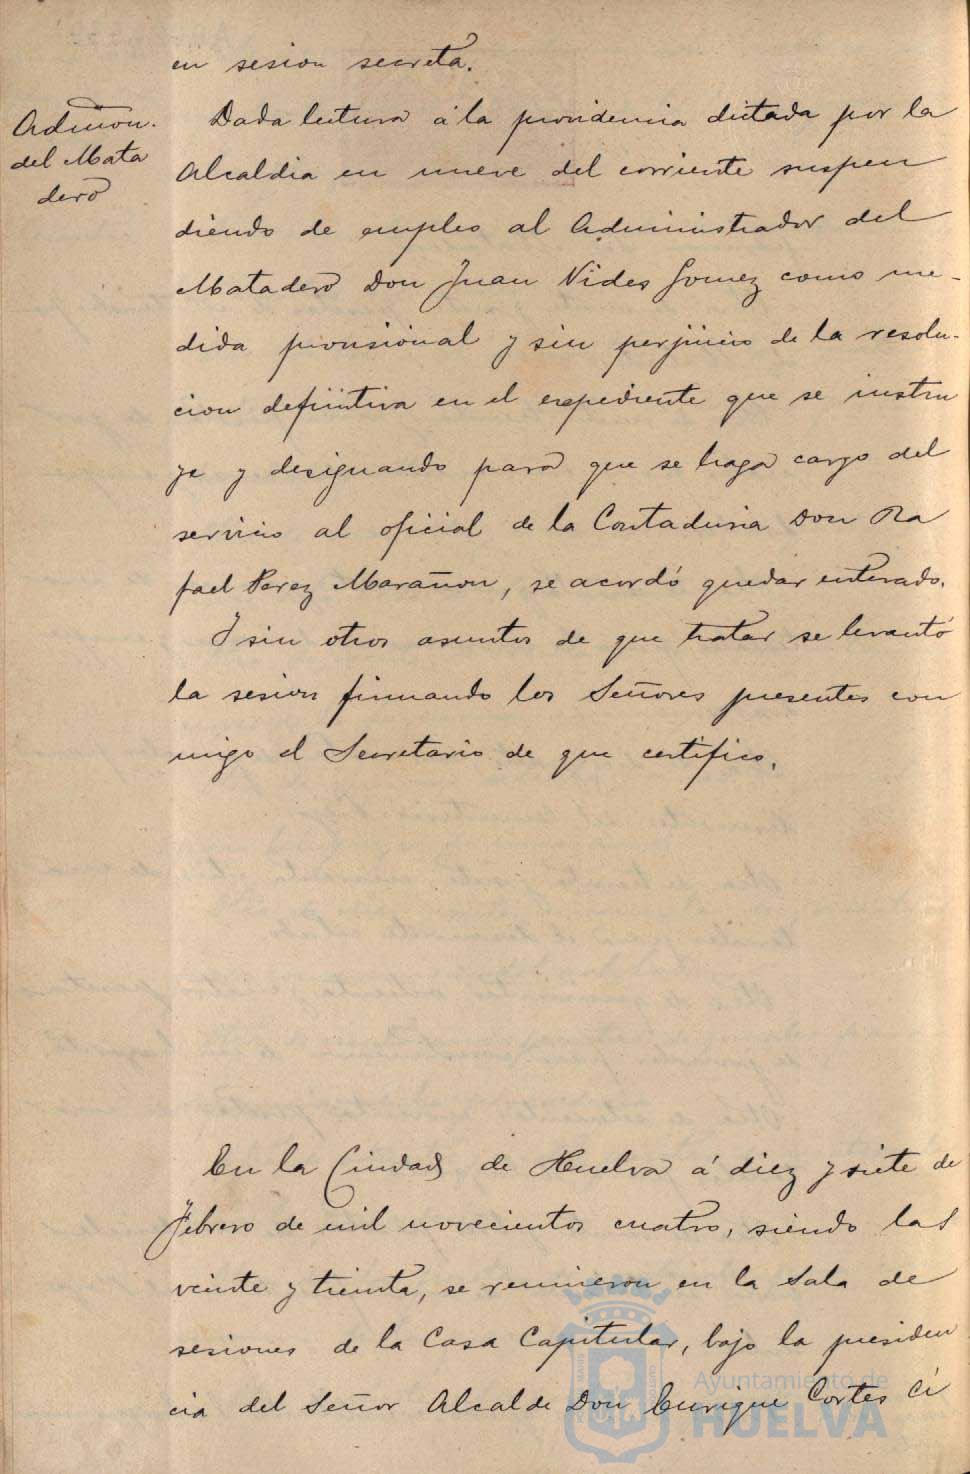 en sesion secreta.
Admon.
del Mata
dero
Dada lectura á la providencia dictada por la
Alcaldia en nueve del corriente suspen
diendo de empleo al Administrador del
Matadero Don Juan Vides Gomez como me-
dida provisional y sin perjuicio de la resolu-
cion definitiva en el expediente que se instru
ye y designando para que se haga cargo del
servicio al oficial de la Contaduria Don Ra
fael Perez Marañon, se acordó quedar enterado.
Y sin otros asuntos de que tratar se levantó
la sesion firmando los Señores presentes con
migo el Secretario de que certifico.
En la Ciudad de Huelva á diez y siete de
Febrero de mil novecientos cuatro, siendo las
veinte y treinta, se reunieron en la Sala de
sesiones de la Casa Capitular, bajo la presiden
cia del Señor Alcalde Don Enrique Cortes Ci
Ayuntamiento de
HUELVA